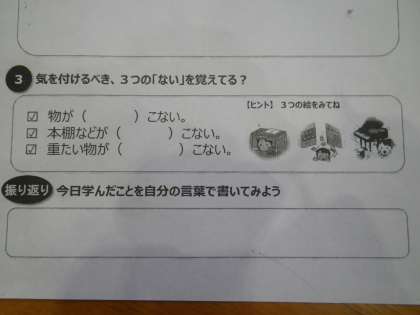 3 気を付けるべき、３つの「ない」を覚えてる？
【ヒント】 ３つの絵をみてね
☑ 物が（　　　　）こない。
☑ 本棚などが（　　　　）こない。
☑ 重たい物が（　　　　）こない。
振り返り 今日学んだことを自分の言葉で書いてみよう